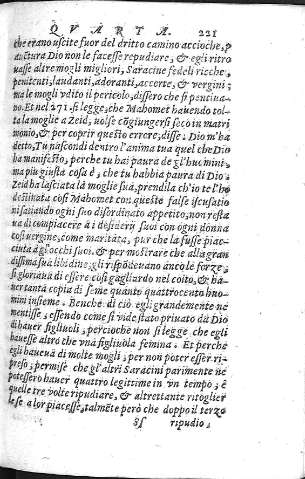 QVARTA. 221
che erano uscite fuor del dritto camino accioche, p
auctura Dio non le facesse repudiare; & egli ritro
uasse altre mogli migliori, Saracine fedeli ricche,
penitenti, laudanti, adoranti, accorte, & vergini;
ma le mogli vdito il pericolo, dissero che si pentiua-
no. Et nel 271. si legge, che Mahomet hauendo tol-
ta la moglie a Zeid, uolse cōgiungersi seco in matri
monio, & per coprir questo errore, disse: Dio m'ha
detto, Tu nascondi dentro l'anima tua quel che Dio
ha manifesto, perche tu hai paura de gl'huomini.
ma piu giusta cosa è, che tu habbia paura di Dio.
Zeid ha lasciata la moglie sua, prendila ch'io te l'ho
destinata così Mahomet con queste false iscusatio
ni satiando ogni suo disordinato appetito, non resta
ua di compiacere a i desiderij suoi con ogni donna
così uergine, come maritata, pur che la fusse piac-
ciuta a gl'occhi suoi. & per mostrare che alla gran
dissima sua libidine, gli rispōdeuano ancò le forze,
si gloriaua di essere così gagliardo nel coito, & ha-
uer tanta copia di seme quanto quattrocento huo-
mini insieme. Benche di ciò egli grandemente ne
mentisse; essendo come si vide stato priuato da Dio
di hauer figliuoli, percioche non si legge che egli
hauesse altro che vna figliuola femina. Et perche
egli haueua di molte mogli, per non poter esser ri-
preso, permise che gl'altri Saracini parimente ne
potessero hauer quattro legittime in vn tempo, &
quelle tre volte ripudiare, & altrettante ritoglier
lese a lor piacesse, talmēte però che doppo il terzo
ripudio,